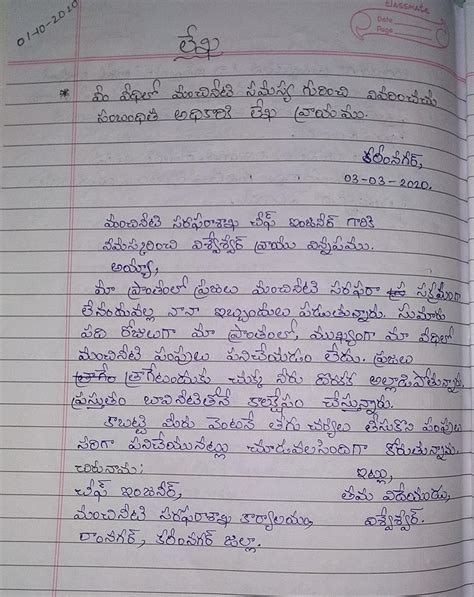 classmate
Date
Page
01-10-2020
లేఖ
* మీ వీధిలో మంచినీటి సమస్య గురించి వివరించుచు
సంబంధిత అధికారికి లేఖ వ్రాయుము.
కరీంనగర్,
03-03-2020.
మంచినీటి సరఫరాశాఖ చీఫ్ ఇంజనీర్ గారికి
నమస్కరించి విశ్వేశ్వర్ వ్రాయు విన్నపము.
అయ్యా,
మా ప్రాంతంలో ప్రజలు మంచినీటి సరఫరా సక్రమంగా
లేనందువల్ల నానా ఇబ్బందులు పడుతున్నారు. సుమారు
పది రోజులుగా మా ప్రాంతంలో, ముఖ్యంగా మా వీధిలో
మంచినీటి పంపులు పనిచేయడం లేదు. ప్రజలు
త్రాగేటందుకు చుక్క నీరు దొరకక అల్లాడిపోతున్నారు.
ప్రస్తుతం బావినీటితోనే కాలక్షేపం చేస్తున్నారు.
కాబట్టి మీరు వెంటనే తగు చర్యలు తీసుకొని పంపులు
సరిగా పనిచేయునట్లు చూడవలసిందిగా కోరుతున్నాను.
చిరునామా: ఇట్లు,
చీఫ్ ఇంజనీర్, తమ విధేయుడు,
మంచినీటి సరఫరాశాఖ కార్యాలయం, విశ్వేశ్వర్.
రాంనగర్, కరీంనగర్ జిల్లా.